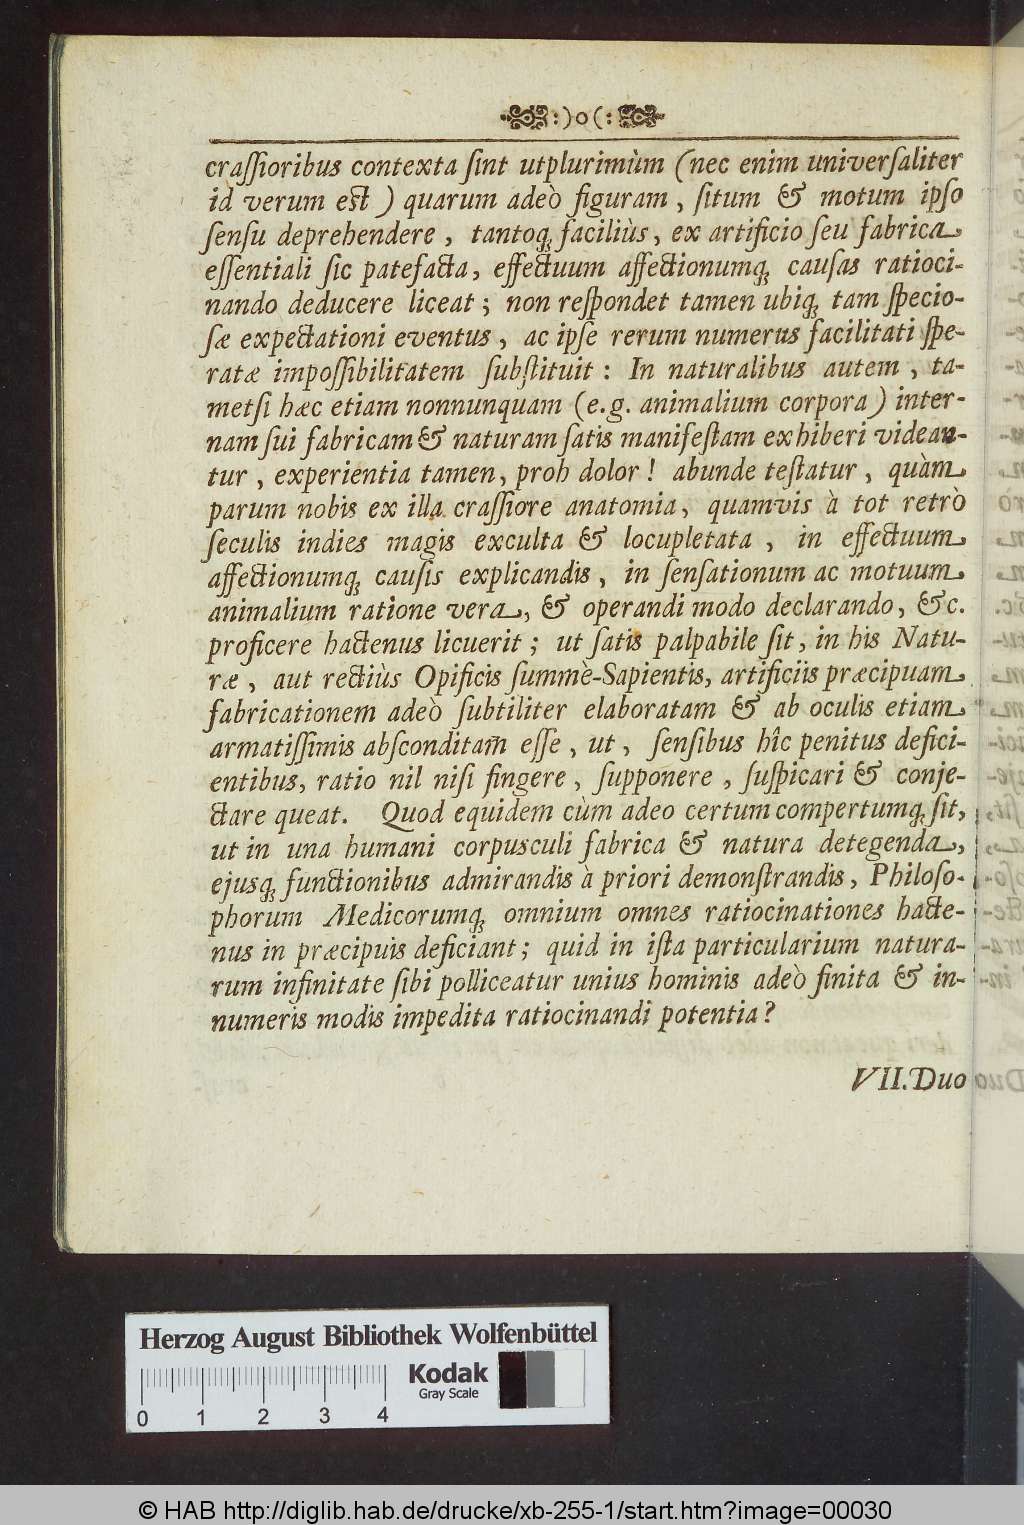 :)o(:
craſſioribus contexta ſint utplurimùm (nec enim univerſaliter
id verum est) quarum adeò figuram, ſitum & motum ipſo
ſenſu deprehendere, tantoq; faciliùs, ex artificio ſeu fabrica
eſſentiali ſic patefacta, effectuum affectionumq; cauſas ratioci-
nando deducere liceat; non reſpondet tamen ubiq; tam ſpecio-
ſæ expectationi eventus, ac ipſe rerum numerus facilitati ſpe-
ratæ impoſſibilitatem ſubſtituit: In naturalibus autem, ta-
metſi hæc etiam nonnunquam (e.g. animalium corpora) inter-
nam ſui fabricam & naturam ſatis manifeſtam exhiberi videan-
tur, experientia tamen, proh dolor! abunde teſtatur, quàm
parum nobis ex illa craſſiore anatomia, quamvis à tot retrò
ſeculis indies magis exculta & locupletata, in effectuum
affectionumq; cauſis explicandis, in ſenſationum ac motuum
animalium ratione vera, & operandi modo declarando, &c.
proficere hactenus licuerit; ut ſatis palpabile ſit, in his Natu-
ræ, aut rectiùs Opificis ſummè-Sapientis, artificiis præcipuam
fabricationem adeò ſubtiliter elaboratam & ab oculis etiam
armatiſſimis abſconditam̃ eſſe, ut, ſenſibus hîc penitus defici-
entibus, ratio nil niſi fingere, ſupponere, ſuſpicari & conje-
ctare queat. Quod equidem cùm adeo certum compertumq; ſit,
ut in una humani corpusculi fabrica & natura detegenda,
ejusq; functionibus admirandis à priori demonſtrandis, Philoſo-
phorum Medicorumq; omnium omnes ratiocinationes hacte-
nus in præcipuis deficiant; quid in iſta particularium natura-
rum infinitate ſibi polliceatur unius hominis adeò finita & in-
numeris modis impedita ratiocinandi potentia?
VII. Duo
Herzog August Bibliothek Wolfenbüttel
Kodak
Gray Scale
0 1 2 3 4
© HAB http://diglib.hab.de/drucke/xb-255-1/start.htm?image=00030